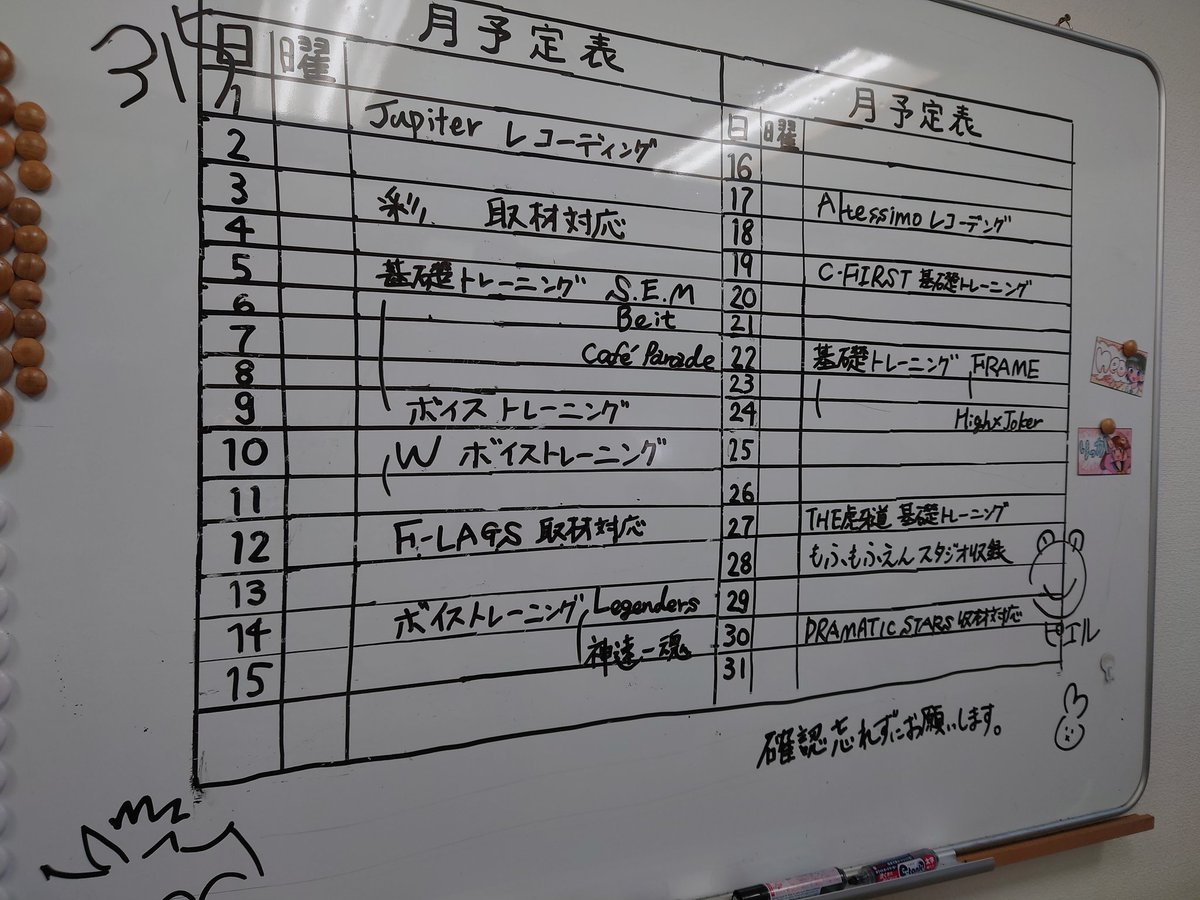 315
月予定表
日 曜
1
2 Jupiter レコーディング
3
4 彩 取材対応
5
6 基礎トレーニング S.E.M
7 Beit
8 Café Parade
9 ボイストレーニング
10 W ボイストレーニング
11
12 F-LAGS 取材対応
13
14 ボイストレーニング Legenders
15 神速一魂
月予定表
日 曜
16
17
18 Altessimo レコーデング
19
20 C.FIRST 基礎トレーニング
21
22 基礎トレーニング FRAME
23
24 High×Joker
25
26
27 THE虎牙道 基礎トレーニング
28 もふもふえん スタジオ収録
29
30 DRAMATIC STARS 取材対応
31
ピエル
確認忘れずにお願いします。